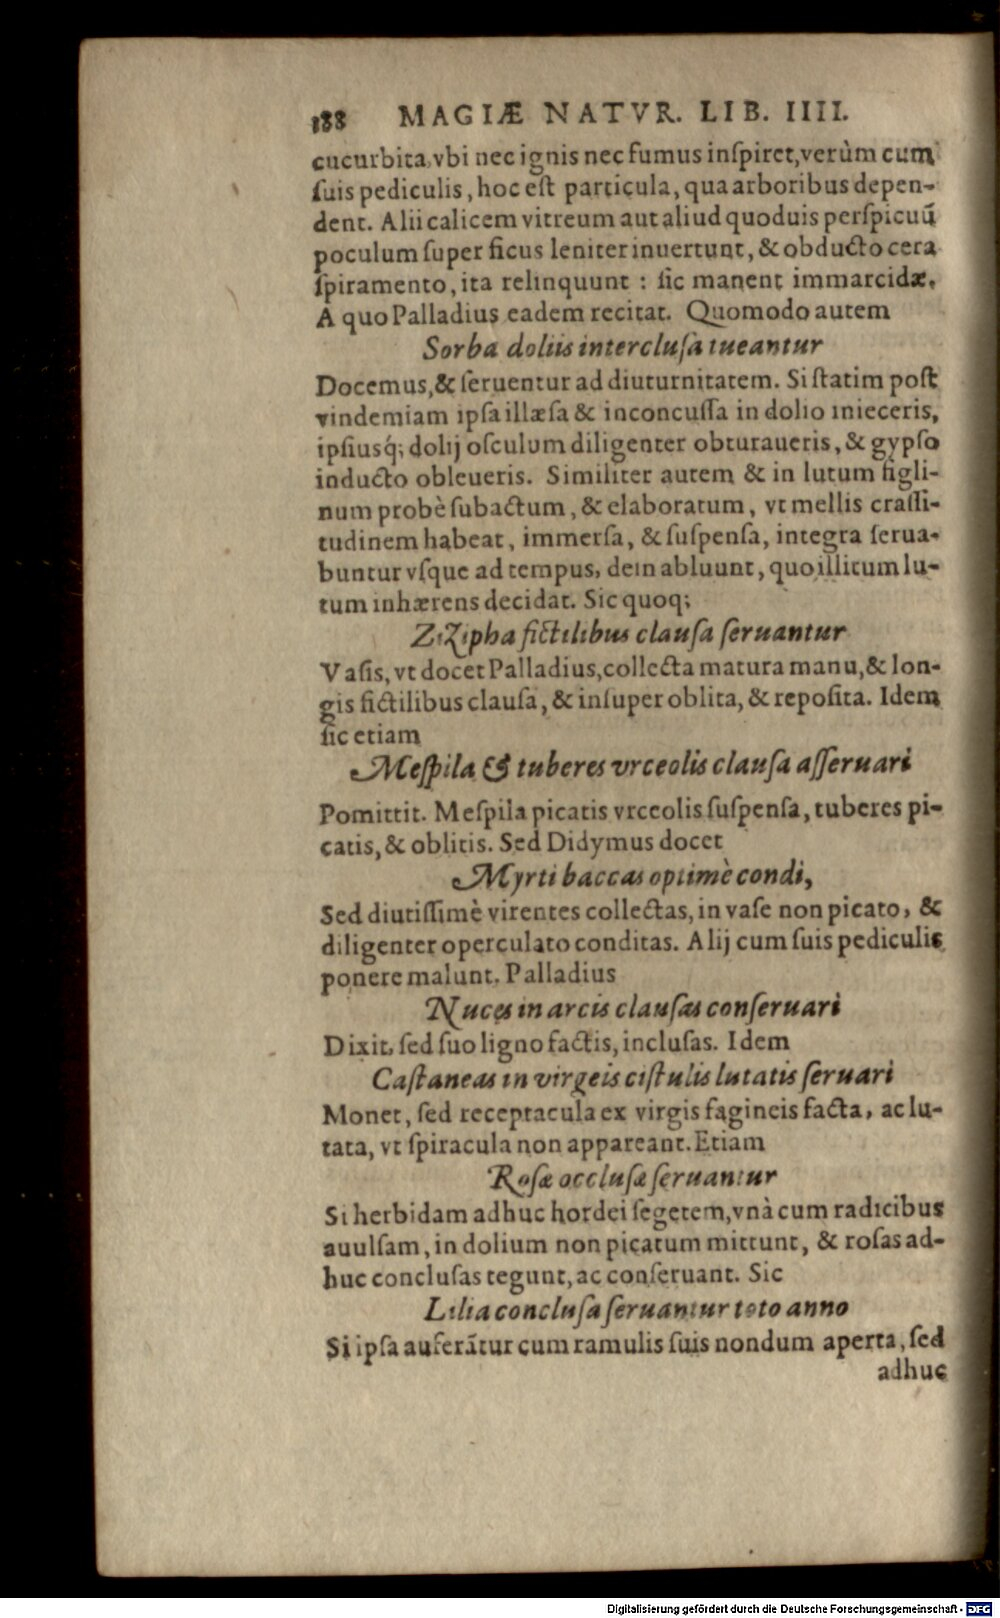 188 MAGIÆ NATVR. LIB. IIII.
cucurbita, vbi nec ignis nec fumus inſpiret, verùm cum
ſuis pediculis, hoc eſt particula, qua arboribus depen-
dent. Alii calicem vitreum aut aliud quoduis perſpicuũ
poculum ſuper ficus leniter inuertunt, & obducto cera
ſpiramento, ita relinquunt : ſic manent immarcidæ.
A quo Palladius eadem recitat. Quomodo autem
Sorba doliis interclusà tueantur
Docemus, & ſeruentur ad diuturnitatem. Si ſtatim poſt
vindemiam ipſa illæſa & inconcuſſa in dolio inieceris,
ipſiusq́; dolij oſculum diligenter obturaueris, & gypſo
inducto obleueris. Similiter autem & in lutum figli-
num probè ſubactum, & elaboratum, vt mellis craſſi-
tudinem habeat, immerſa, & ſuſpenſa, integra ſerua-
buntur vſque ad tempus, dein abluunt, quo illitum lu-
tum inhærens decidat. Sic quoq;
Zizipha fictilibus clauſa ſeruantur
Vaſis, vt docet Palladius, collecta matura manu, & lon-
gis fictilibus clauſa, & inſuper oblita, & repoſita. Idem
ſic etiam
Meſpila & tuberes vrceolis clauſa aſſeruari
Pomittit. Meſpila picatis vrceolis ſuſpenſa, tuberes pi-
catis, & oblitis. Sed Didymus docet
Myrti baccas optimè condi,
Sed diutiſſimè virentes collectas, in vaſe non picato, &
diligenter operculato conditas. Alij cum ſuis pediculis
ponere malunt. Palladius
Nuces in arcis clauſas conſeruari
Dixit, ſed ſuo ligno factis, incluſas. Idem
Caſtaneas in virgeis ciſtulis lutatis ſeruari
Monet, ſed receptacula ex virgis fagineis facta, ac lu-
tata, vt ſpiracula non appareant. Etiam
Roſæ occluſæ ſeruantur
Si herbidam adhuc hordei ſegetem, vnà cum radicibus
auulſam, in dolium non picatum mittunt, & roſas ad-
huc concluſas tegunt, ac conſeruant. Sic
Lilia concluſa ſeruantur toto anno
Si ipſa auferãtur cum ramulis ſuis nondum aperta, ſed
adhuc
Digitalisierung gefördert durch die Deutsche Forschungsgemeinschaft - DFG